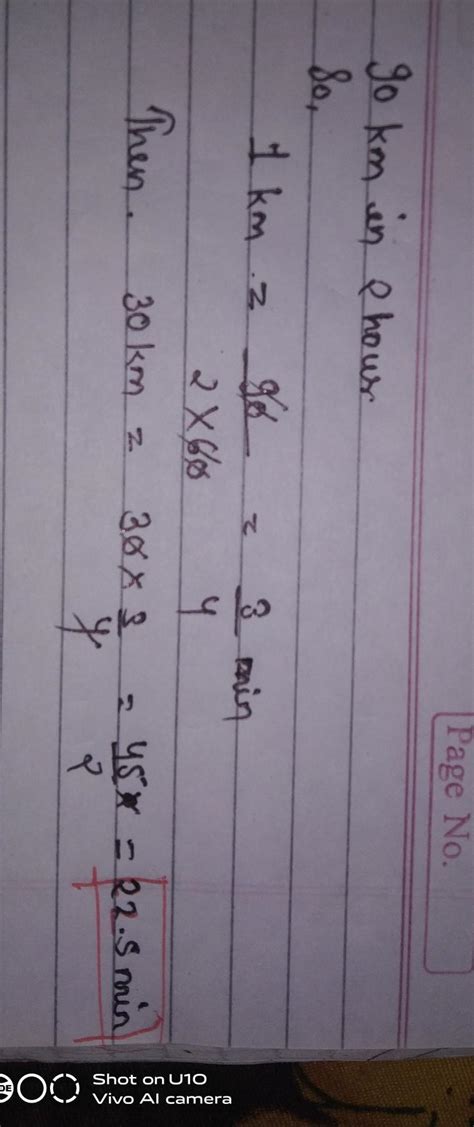 Page No.
90 km in 2 hour
So,
1 km = 90 / 2 × 60 = 3 / 4 min
Then. 30 km = 30 × 3 / 4 = 45 / 2 = 22.5 min
Shot on U10
Vivo AI camera